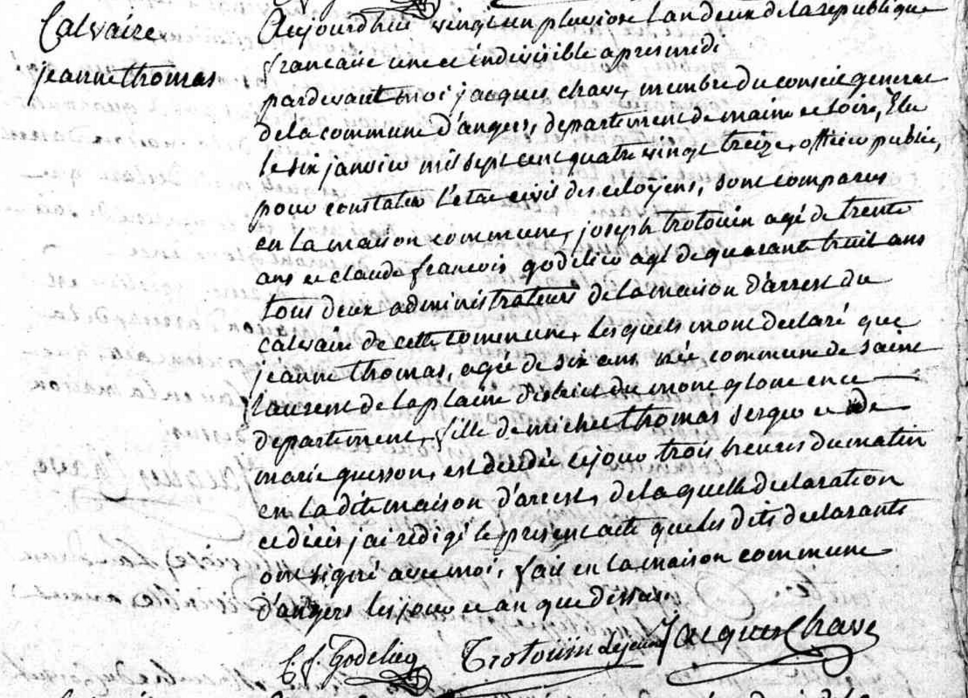 Calvaire
jeanne thomas
Aujourdhui vingt un pluviose lan deux de la republique
francaise une et indivisible apres midi
pardevant moi jacques chave, membre du conseil general
de la commune d'angers, departement de maine et loire, Elu
le six janvier mil sept cent quatre vingt treize, officier public,
pour constater l'etat civil des citoyens, sont comparus
en la maison commune, joseph trotouin agé de trente
ans et claude francois godelier agé de quarante huit ans
tous deux administrateurs de la maison d'arrest du
calvaire de cette commune, lesquels mont declaré que
jeanne thomas, agée de six ans née commune de saint
laurent de la plaine district du mont glone en ce
departement, fille de michel thomas serger et de
marie quesson, est decedée ce jour trois heures du matin
en la dite maison d'arrest, de laquelle declaration
et décès j'ai rédigé le present acte que les dits declarants
ont signé avec moi, fait en la maison commune
d'angers les jour et an que dessus.
C. f. Godelier Trotouin lejeune Jacques Chave